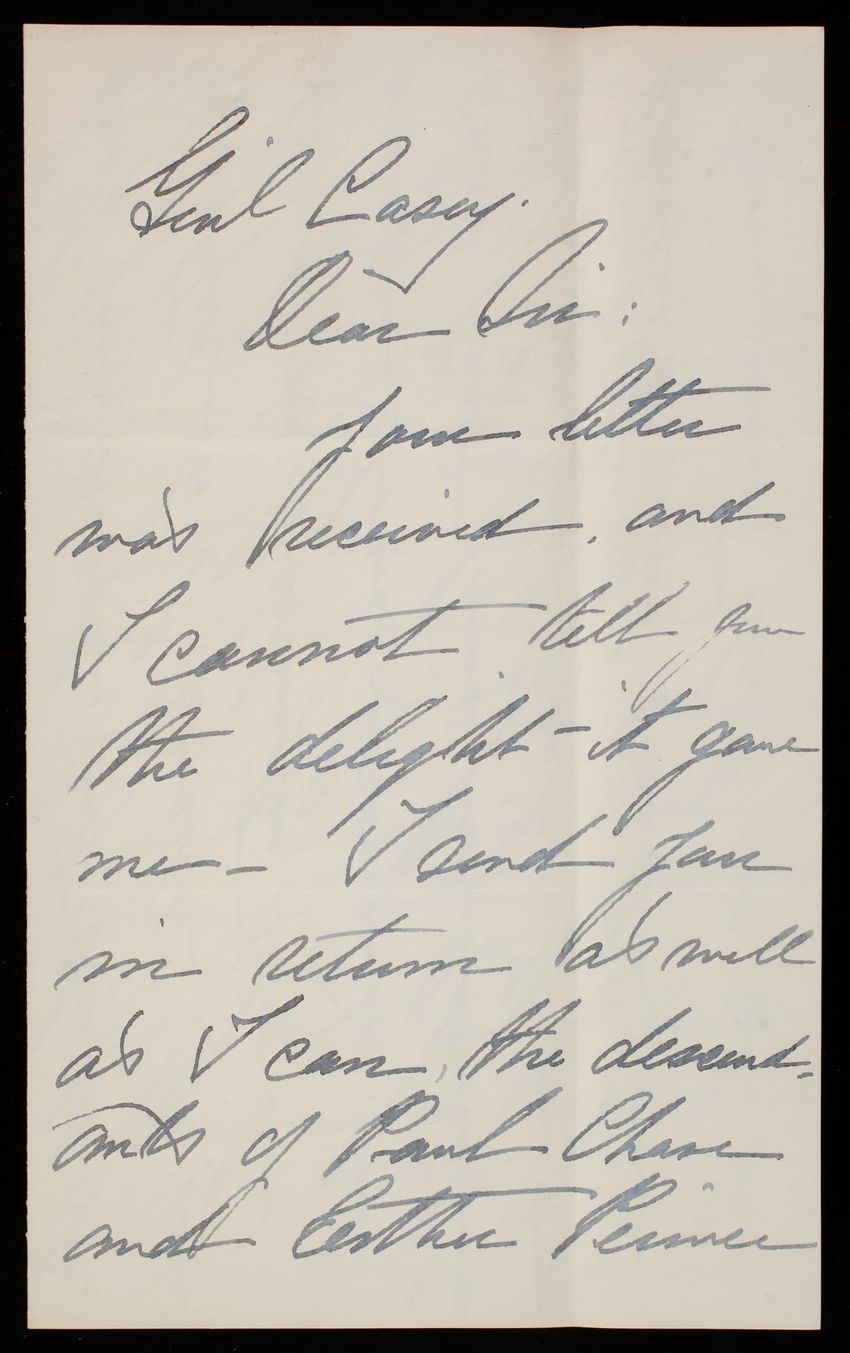 Genl Casey.
Dear Sir:
Your letter
was received, and
I cannot tell you
the delight - it gave
me - I send you
in return as well
as I can, the descend-
ants of Paul Chase
and Esther